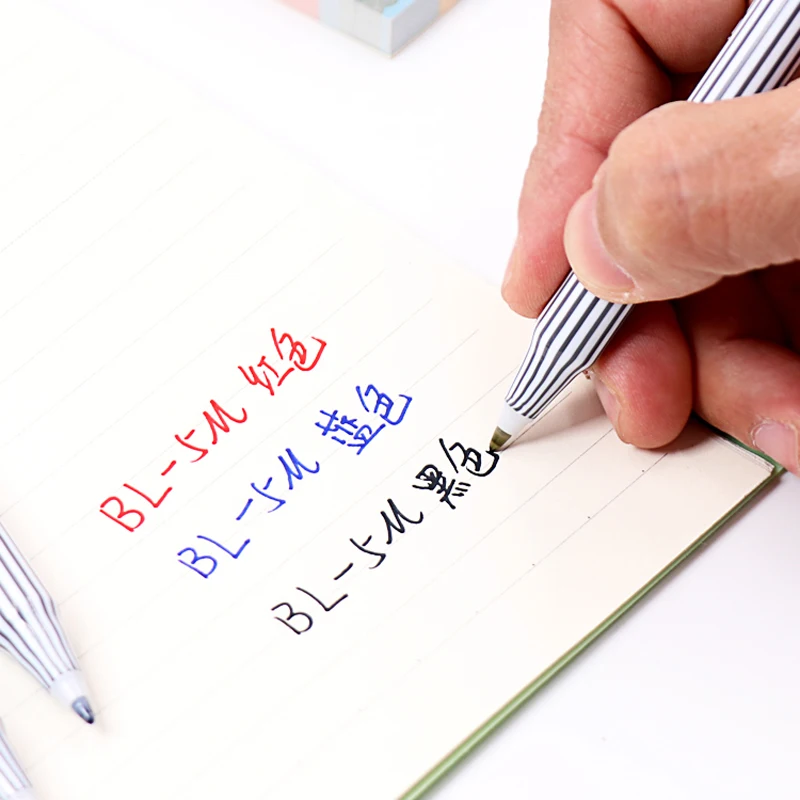 BL-5M 红色
BL-5M 蓝色
BL-5M 黑色